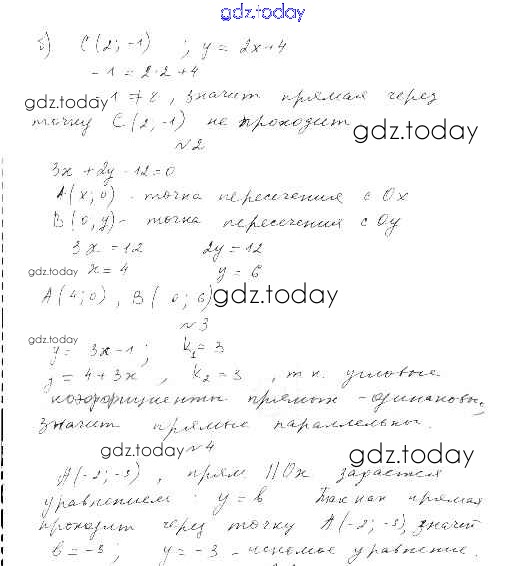 gdz.today
б) C(2; -1) ; y = 2x+4
-1 = 2·2+4
gdz.today -1 ≠ 8, значит прямая через
точку C(2, -1) не проходит gdz.today
№2
3x + 2y - 12 = 0
A(x; 0) - точка пересечения с Ox
B(0, y) - точка пересечения с Oy
3x = 12 2y = 12
gdz.today x = 4 y = 6
A(4; 0), B(0; 6) gdz.today
№3
gdz.today
y = 3x - 1; k₁ = 3
y = 4 + 3x, k₂ = 3, т.к. угловые
коэффициенты прямых - одинаковы,
значит прямые параллельны.
gdz.today №4 gdz.today
A(-2; -3), прям || Ox задается
уравнением y = b Так как прямая
проходит через точку A(-2; -3), значит
b = -3; y = -3 - искомое уравнение.